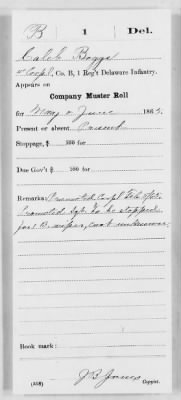 B | 1 | Del.
Caleb Boggs
Corp'l, Co. B, 1 Reg't Delaware Infantry.
Appears on
Company Muster Roll
for May & June, 186
Present or absent Present
Stoppage, $ 100 for
Due Gov't $ 100 for
Remarks: Promoted Corpl Feb
Promoted to be stopped
for
Book mark:
(358)
Copyist.